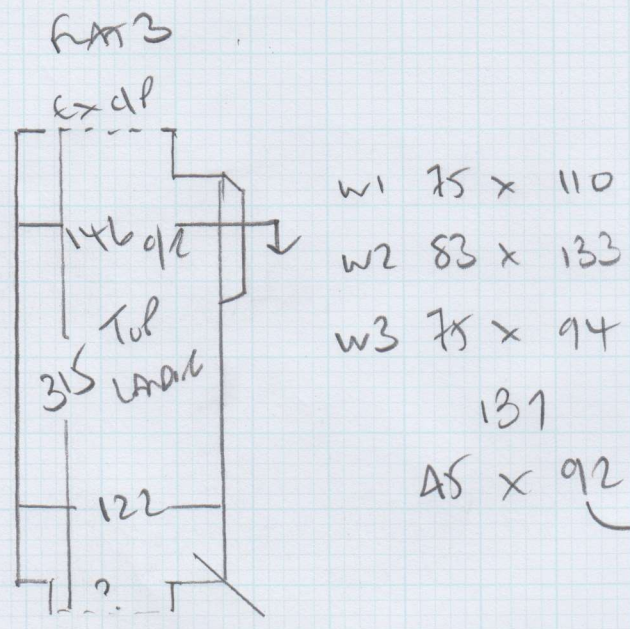 FLAT 3
Ex dP
146 92
Top
Landing
315
122
?
W1 75 x 110
W2 83 x 133
W3 75 x 94
131
45 x 92